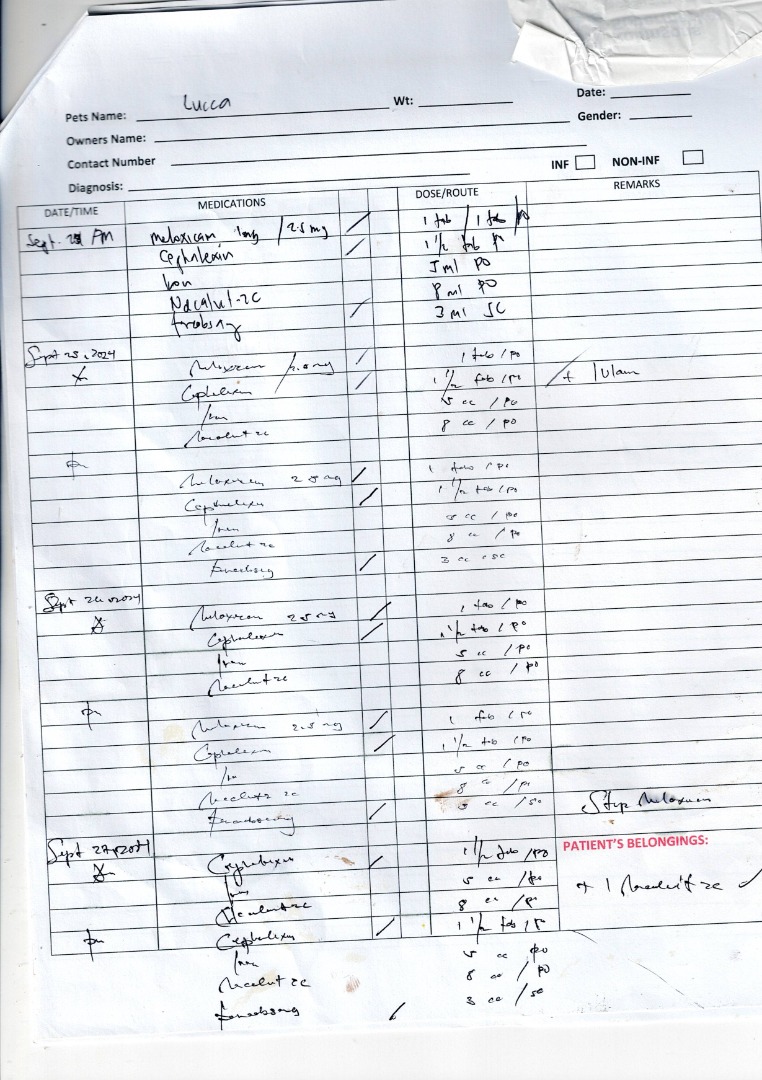 Pets Name: Lucca Wt: Date:
Owners Name: Gender:
Contact Number INF NON-INF
Diagnosis:
DATE/TIME MEDICATIONS DOSE/ROUTE REMARKS
Sept. PM Meloxicam 1mg / 2.5 mg 1 tab / 1 tab
Cephalexin 1 1/2 tab
Iron 5 ml PO
Nacalvit-2C 8 ml PO
3 ml SC
Sept 25, 2024 Meloxicam 1 tab / po
Cephalexin 1 1/2 tab / po
Iron 5 cc / po
8 cc / po
Meloxicam 2.5 mg 1 tab / po
Cephalexin 1 1/2 tab / po
Iron 5 cc / po
8 cc / po
3 cc / sc
Sept 26 2024 Meloxicam 2.5 mg 1 tab / po
Cephalexin 1 1/2 tab / po
Iron 5 cc / po
8 cc / po
pm Meloxicam 2.5 mg 1 tab / po
Cephalexin 1 1/2 tab / po
Iron 5 cc / po
8 cc / po
cc / sc Stop Meloxicam
Sept 27, 2024 Cephalexin 1 1/2 tab / po PATIENT'S BELONGINGS:
Iron 5 cc / po
8 cc / po + 1
pm Cephalexin 1 1/2 tab / po
Iron 5 cc po
8 cc / po
3 cc / sc